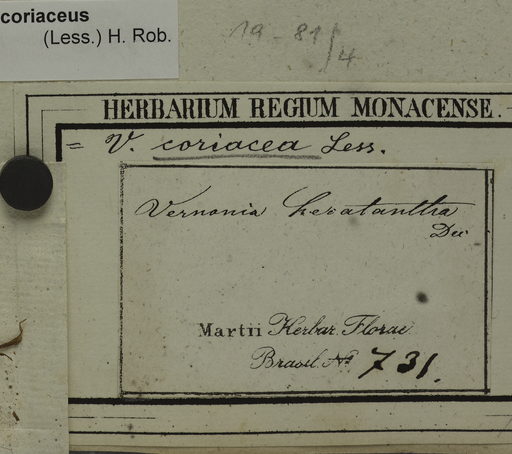 coriaceus
(Less.) H. Rob.
19-81/4
HERBARIUM REGIUM MONACENSE.
= V. coriacea Less.
Vernonia keratantha
Dec
Martii Herbar. Florae
Brasil. No 731.